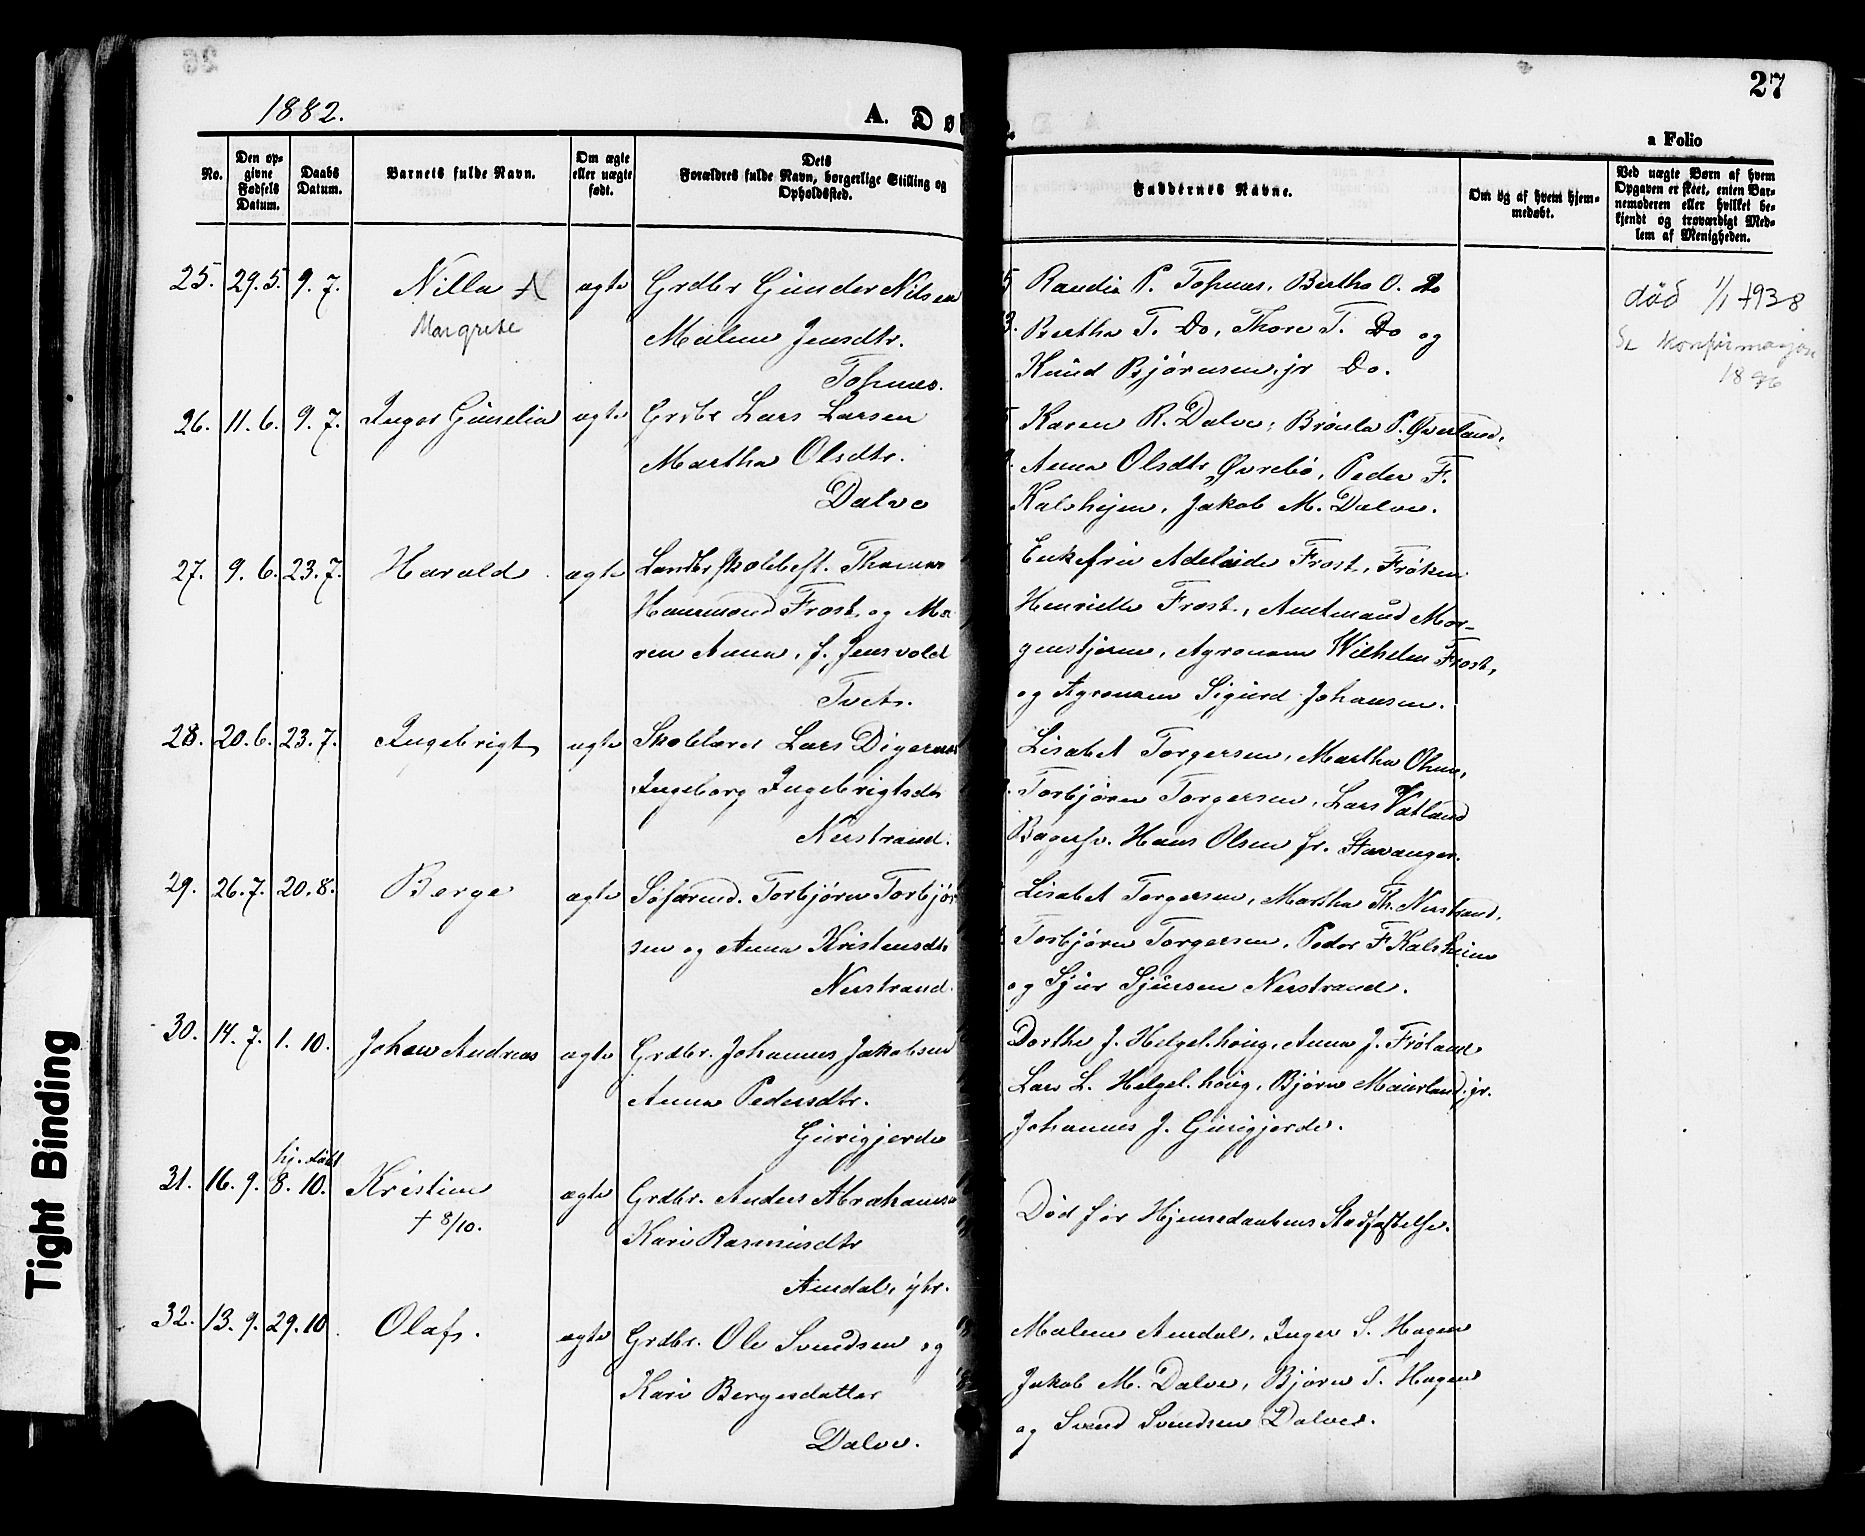 26
1882.
A. Dø
27
a Folio
No.
Den opgivne Fødsels Datum.
Daabs Datum.
Barnets fulde Navn.
Om ægte eller uægte født.
Dets
Forældres fulde Navn, borgerlige Stilling og Opholdssted.
Faddernes Navne.
Om og af hvem hjemmedøbt.
Ved uægte Børn af hvem Opgaven er skeet, enten Barnemoderen eller hvilket bekjendt og troværdigt Medlem af Menigheden.
25. 29.5. 9.7. Nilla ægte Grdbr Gunder Nilsen
Margrete Malene Jensdtr.
Tofnæs.
Randia P. Tofnæs, Bertha O. Do
Bertha T. Do, Thore T. Do og
Knud Bjørnsen jr Do.
død 1/1 1938
Se konfirmasjon
1896
26. 11.6. 9.7. Inger Gunelia ægte Grdbr Lars Larsen
Martha Olsdtr.
Dalve
Karen R. Dalve, Brønla P. Øverland,
Anna Olsdtr Øvrebø, Peder F.
Kalshejen, Jakob M. Dalve.
27. 9.6. 23.7. Harald ægte Landbrskolebest. Thomas
Hammond Frost og Ma
ren Anna, f. Jensvold
Tveit.
Enkefru Adelaide Frost, Frøken
Henriette Frost, Amtmand Mor-
genstjerne, Agronom Wilhelm Frost,
og Agronom Sigurd Johansen.
28. 20.6. 23.7. Ingebrigt ægte Skolelærer Lars Digernæs
Ingeborg Ingebrigtsdtr
Nerstrand.
Lisabet Torgersen, Martha Olsen,
Torbjøren Torgersen, Lars Vatland
Bagersv. Hans Olsen fr. Stavanger.
29. 26.7. 20.8. Berge ægte Søfarend. Torbjøren Torbjør
sen og Anna Kristensdtr
Nerstrand.
Lisabet Torgersen, Martha Th. Nerstrand,
Torbjøren Torgersen, Peder F Kalsheim
og Sjur Sjursen Nerstrand.
30. 14.7. 1.10. Johan Andreas ægte Grdbr. Johannes Jakobsen
Anna Pedersdtr.
Gurigjerde
Dorthe J. Helgelhoug, Anna J. Frøland
Lars L. Helgel.houg, Bjørn Maurland jr.
Johannes J. Gurigjerde.
hj. døbt
31. 16.9. 8.10. Kristine ægte Grdbr. Anders Abrahamsen
† 8/10. Kari Rasmusdtr
Amdal, ytr.
Død før Hjemmedaabens Stadfæstelse.
32. 13.9. 29.10. Olaf. ægte Grdbr. Ole Svendsen og
Kari Bergesdatter
Dalve.
Malene Amdal, Inger S. Hagen
Jakob M. Dalve, Bjøren T. Hagen
og Svend Svendsen Dalve.
Tight Binding